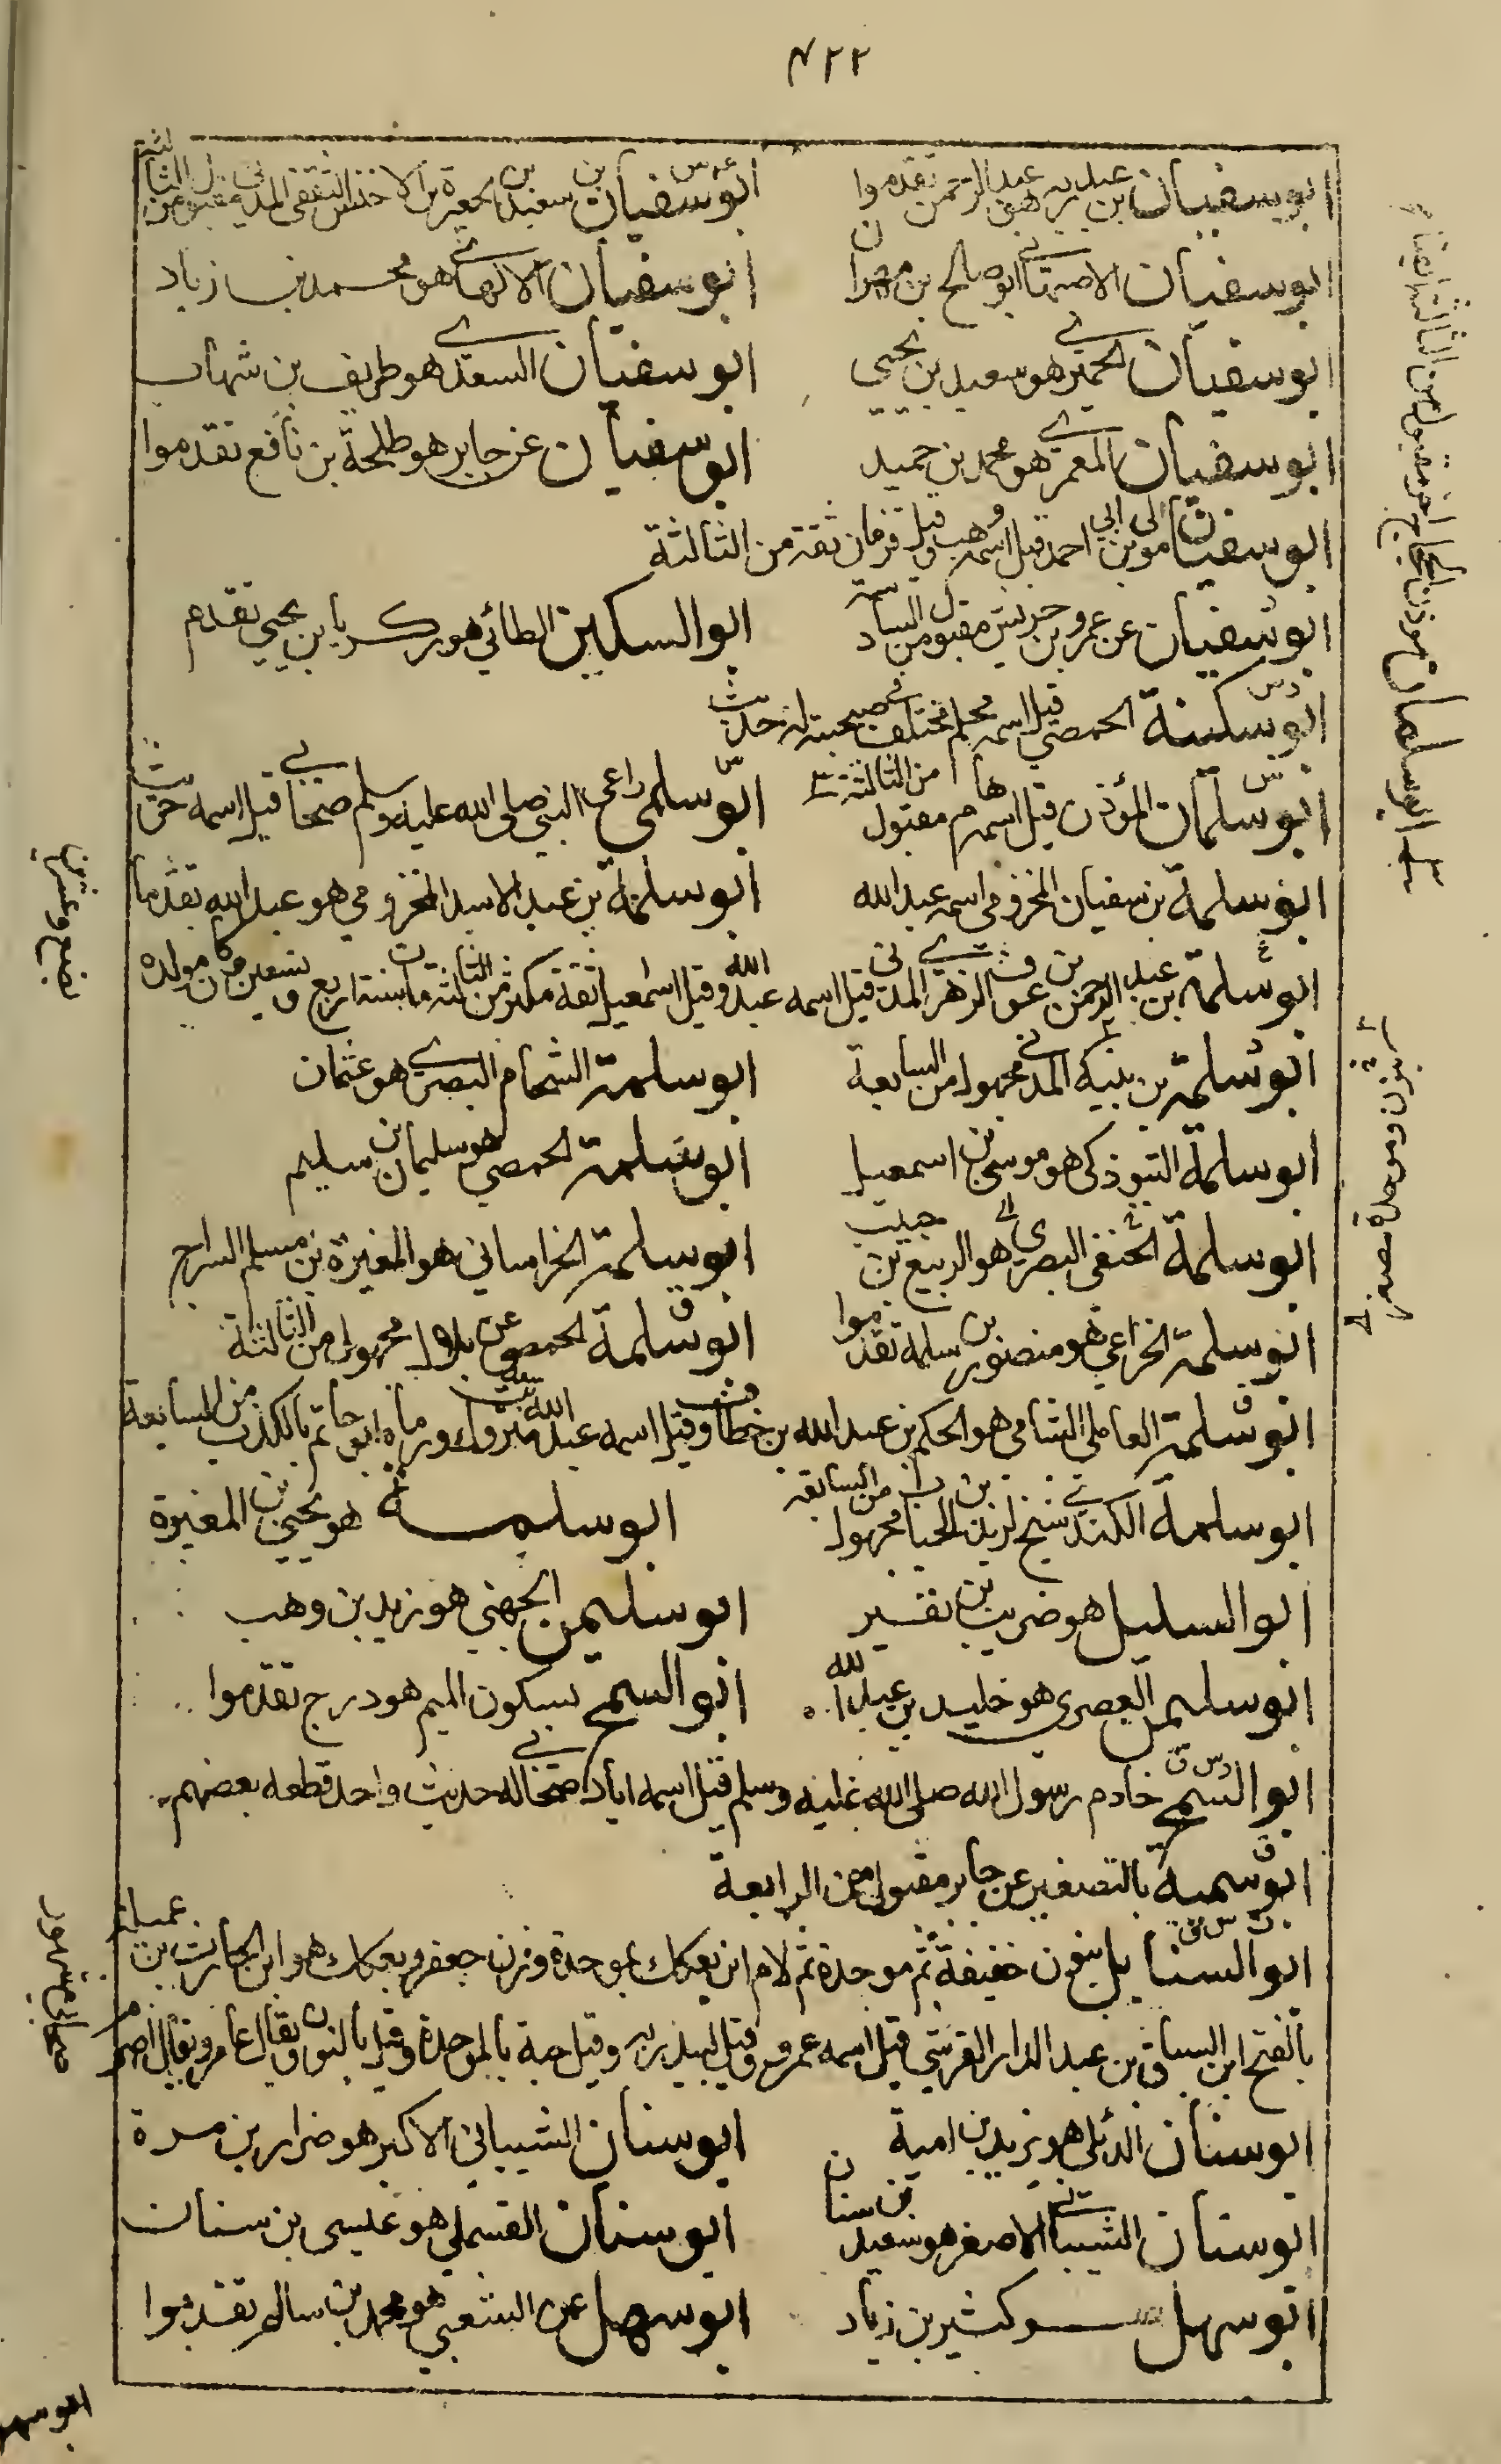 ٤٢٢
ابو سفيان بن عبد ربه هو عبد الرحمن تقدموا ابو سفيان بن سعيد بن المغيرة بن الاخنس الثقفي المدني مقبول من الثالثة
ابو سفيان الاصبهاني ابو صالح بن مهران ابو سفيان الالهاني هو محمد بن زياد
ابو سفيان الحميري هو سعيد بن يحيى ابو سفيان السعدي هو طريف بن شهاب
ابو سفيان المعمري هو محمد بن حميد ابو سفيان عن جابر هو طلحة بن نافع تقدموا
ابو سفيان مولى ابن ابي احمد قيل اسمه وهب وقيل قزمان ثقة من الثالثة
ابو سفيان عن عمرو بن حريش مقبول من السادسة ابو السكين الطائي هو زكريا بن يحيى تقدم
ابو سكينة الحمصي قيل اسمه محلم مختلف في صحبته له حديث
ابو سلمان المؤذن قيل اسمه همام مقبول من الثالثة ابو سلمى راعي النبي صلى الله عليه وسلم صحابي قيل اسمه حريث
ابو سلمة بن سفيان المخزومي اسمه عبد الله ابو سلمة بن عبد الاسد المخزومي هو عبد الله تقدما
ابو سلمة بن عبد الرحمن بن عوف الزهري المدني قيل اسمه عبد الله وقيل اسمعيل ثقة مكثر من الثالثة مات سنة اربع وتسعين وكان مولده
ابو سلمة بن نبيه المدني مجهول من السابعة ابو سلمة الشحام البصري هو عثمان
ابو سلمة التبوذكي هو موسى بن اسمعيل ابو سلمة الحمصي هو سليمان بن سليم
ابو سلمة الحنفي البصري هو الربيع بن حبيب ابو سلمة الخراساني هو المغيرة بن مسلم السراج
ابو سلمة الخزاعي هو منصور بن سلمة تقدموا ابو سلمة الحمصي عن بلال مجهول من الثالثة
ابو سلمة العاملي الشامي هو الحكم بن عبد الله بن خطاف وقيل اسمه عبد الله متروك ورماه ابو حاتم بالكذب من السابعة
ابو سلمة الكندي شيخ لزيد بن الحباب مجهول من السابعة ابو سلمة هو يحيى بن المغيرة
ابو السليل هو ضريب بن نقير ابو سليمن الجهني هو زيد بن وهب
ابو سليمن العصري هو خليد بن عبد الله ابو السمح بسكون الميم هو دراج تقدموا
ابو السمح خادم رسول الله صلى الله عليه وسلم قيل اسمه اياد صحابي له حديث واحد قطعه بعضهم
ابو سمية بالتصغير عن جابر مقبول من الرابعة
ابو السنابل بنون خفيفة ثم موحدة ثم لام ابن بعكك بموحدة وزن جعفر وبعكك هو ابن الحارث بن عميلة
بالفتح ابن السباق بن عبد الدار القرشي قيل اسمه عمرو وقيل لبيد ربه وقيل حبة بالموحدة وقيل بالنون ويقال عامر ويقال اصرم
ابو سنان الدئلي هو يزيد بن امية ابو سنان الشيباني الاكبر هو ضرار بن مرة
ابو سنان الشيباني الاصغر هو سعيد بن سنان ابو سنان القسملي هو عيسى بن سنان
ابو سهل هو كثير بن زياد ابو سهل عن الشعبي هو محمد بن سالم تقدموا
ابو سهل
ابو سليمان مؤذن الحجاج اخر مقبول من الثالثة ايضا
بنون وموحدة مصغر
بضع وعشرين
صحابي مشهور